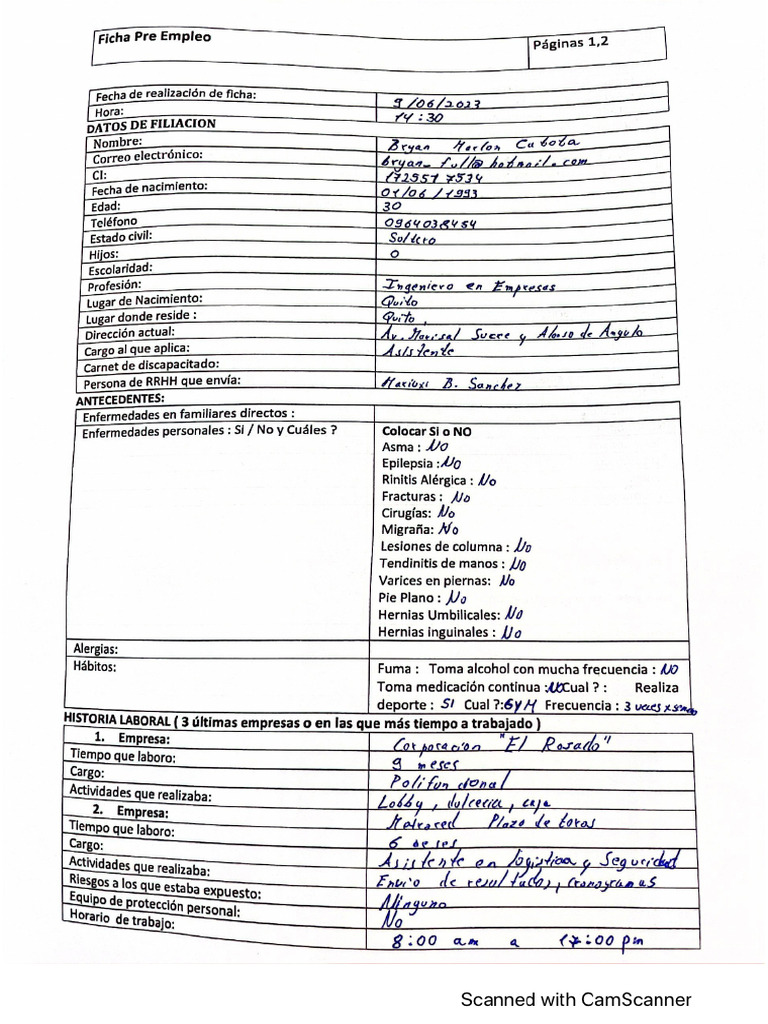 Ficha Pre Empleo
Páginas 1,2
Fecha de realización de ficha: 9/06/2023
Hora: 14:30
DATOS DE FILIACION
Nombre: Bryan Marlon Cabota
Correo electrónico: bryan_full@hotmail.com
CI: 172551 7534
Fecha de nacimiento: 01/06/1993
Edad: 30
Teléfono 0964038454
Estado civil: Soltero
Hijos: 0
Escolaridad:
Profesión: Ingeniero en Empresas
Lugar de Nacimiento: Quito
Lugar donde reside : Quito,
Dirección actual: Av. Marisal Sucre y Alonso de Angulo
Cargo al que aplica: Asistente
Carnet de discapacitado:
Persona de RRHH que envía: Mariuxi B. Sanchez
ANTECEDENTES:
Enfermedades en familiares directos :
Enfermedades personales : Si / No y Cuáles ? Colocar Si o NO
Asma : NO
Epilepsia : NO
Rinitis Alérgica : No
Fracturas : No
Cirugías: No
Migraña: No
Lesiones de columna : No
Tendinitis de manos : No
Varices en piernas: No
Pie Plano : No
Hernias Umbilicales: No
Hernias inguinales : No
Alergias:
Hábitos: Fuma : Toma alcohol con mucha frecuencia : NO
Toma medicación continua : NO Cual ? : Realiza
deporte : SI Cual ?: GYM Frecuencia : 3 veces x
HISTORIA LABORAL ( 3 últimas empresas o en las que más tiempo a trabajado )
1. Empresa: Corporacion "El Rosado"
Tiempo que laboro: 9 meses
Cargo: Polifuncional
Actividades que realizaba: Lobby, dulceria, caja
2. Empresa: Plaza de toros
Tiempo que laboro: 6 meses
Cargo: Asistente en logistica y Seguridad
Actividades que realizaba: Envio de resultados, cronogramas
Riesgos a los que estaba expuesto: Ninguno
Equipo de protección personal: No
Horario de trabajo: 8:00 am a 17:00 pm
Scanned with CamScanner